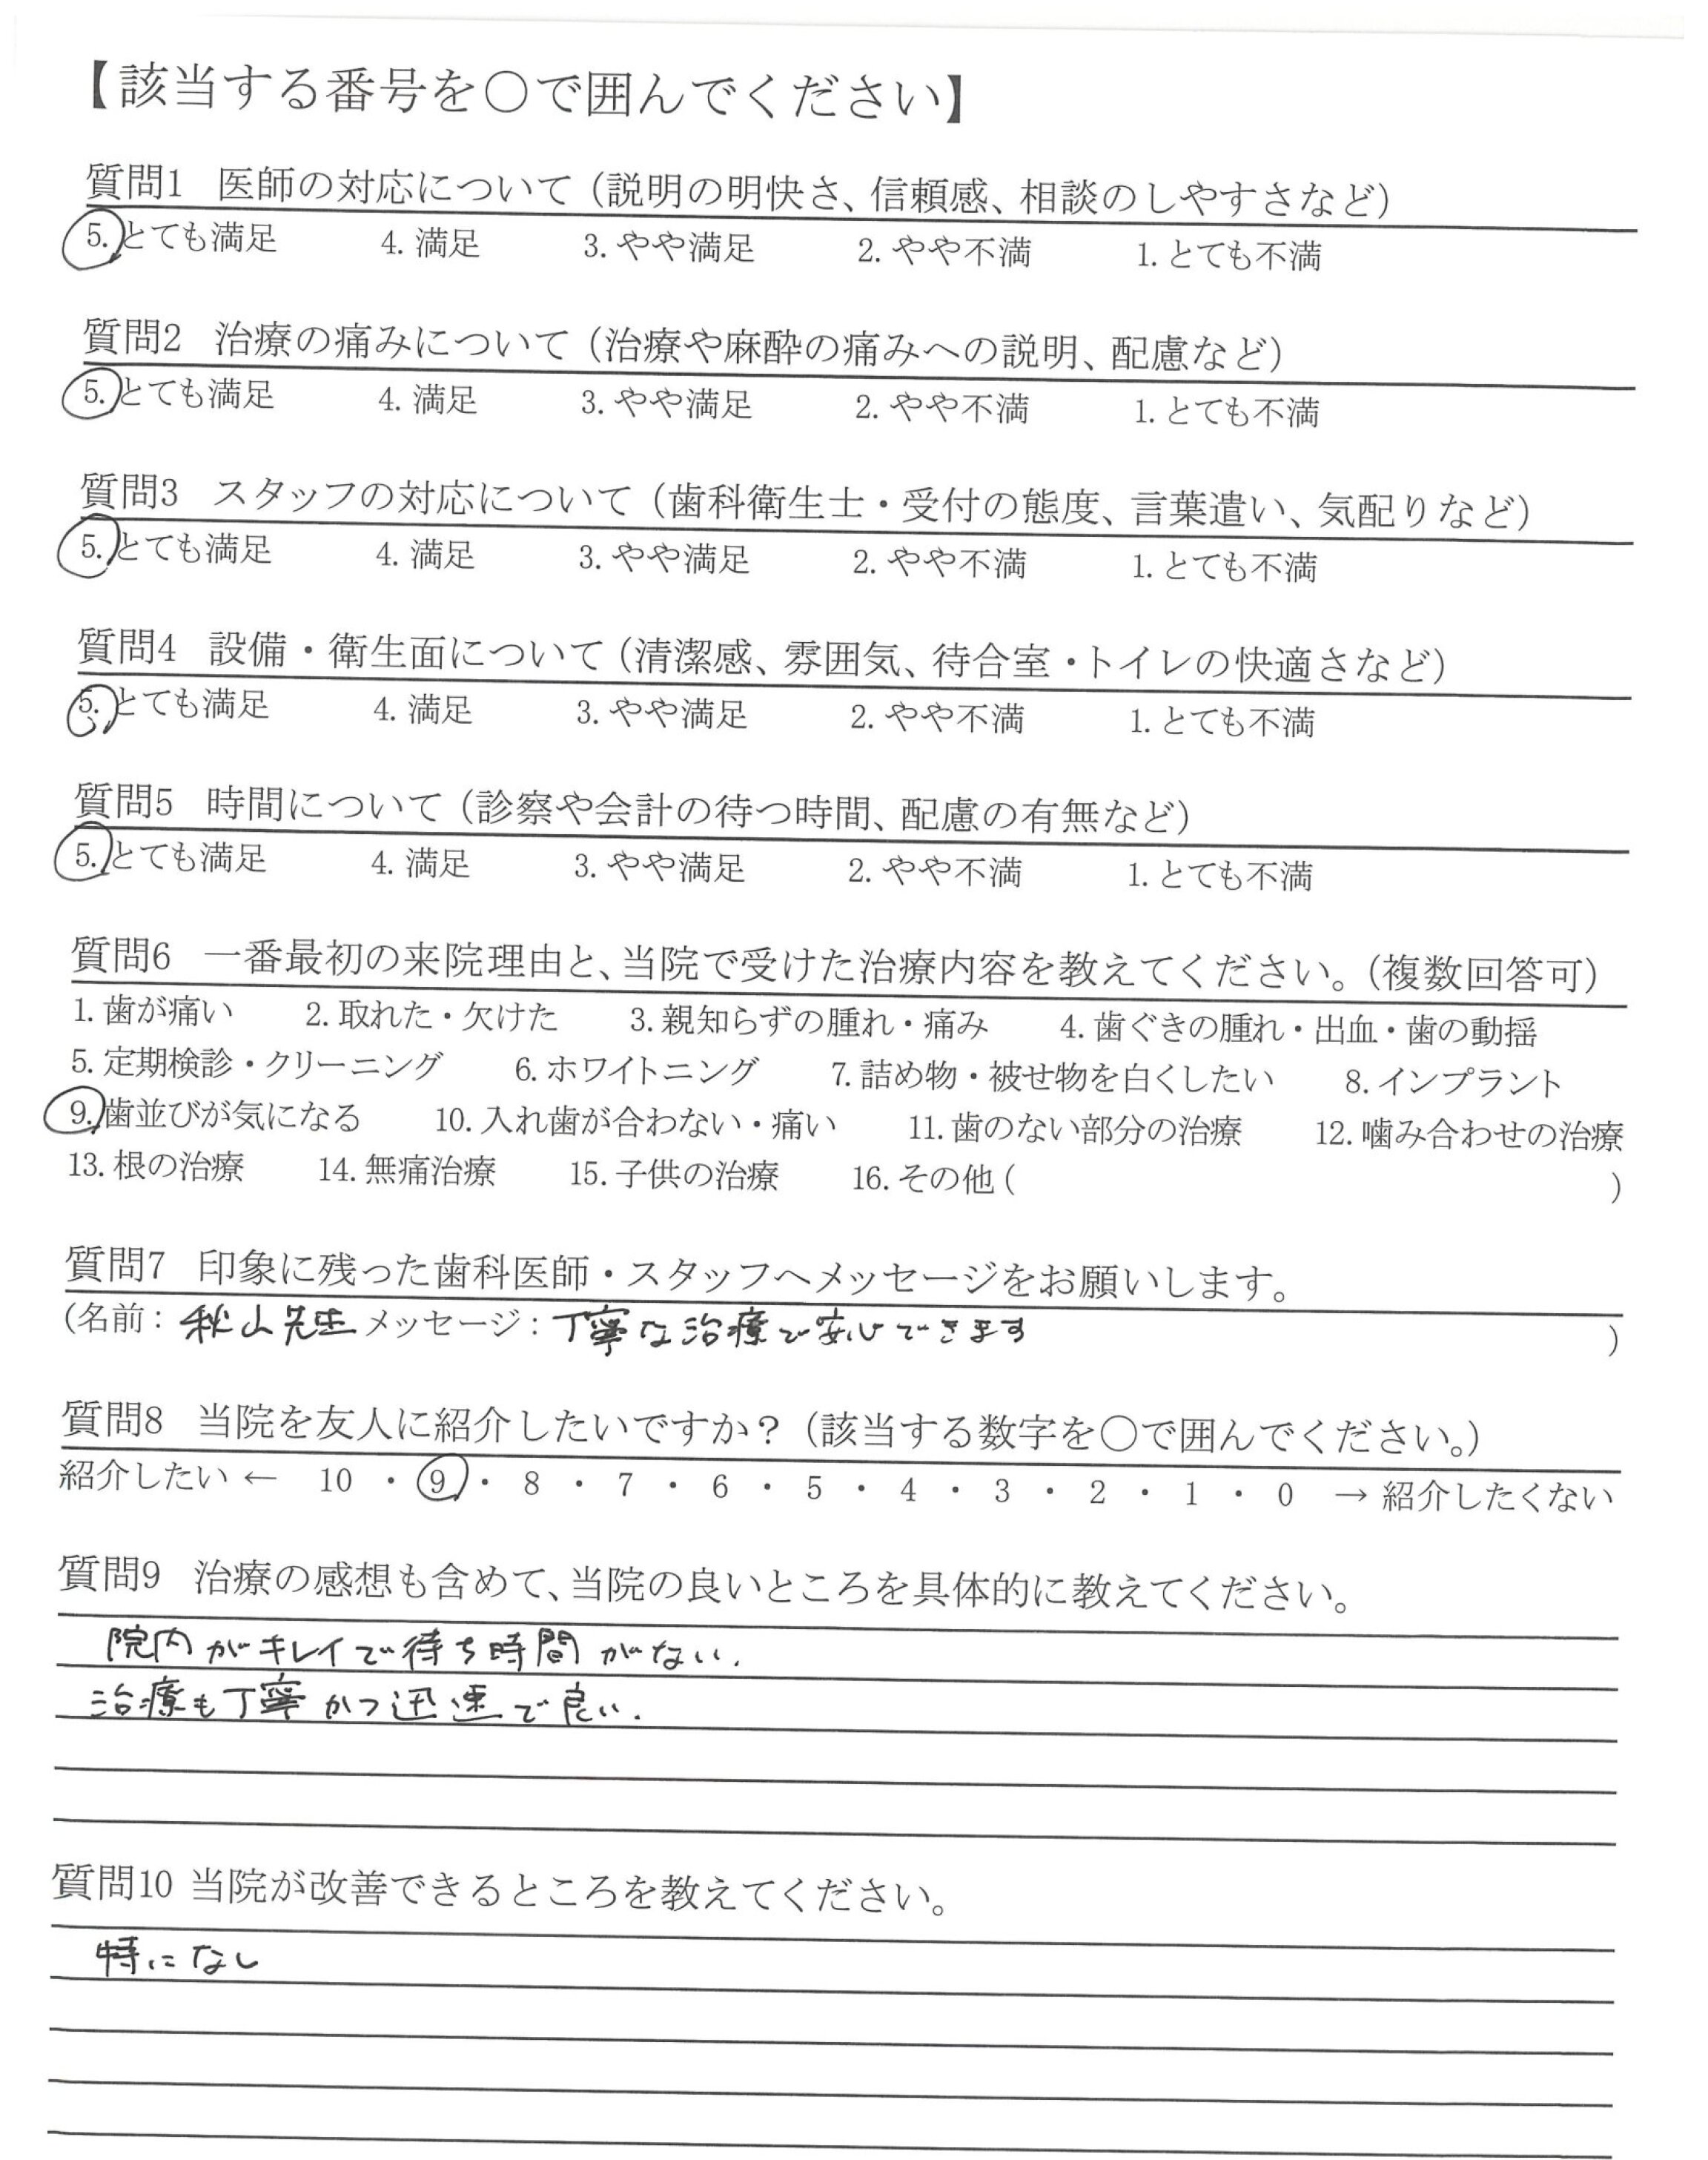 【該当する番号を○で囲んでください】
質問1 医師の対応について（説明の明快さ、信頼感、相談のしやすさなど）
5. とても満足 4. 満足 3. やや満足 2. やや不満 1. とても不満
質問2 治療の痛みについて（治療や麻酔の痛みへの説明、配慮など）
5. とても満足 4. 満足 3. やや満足 2. やや不満 1. とても不満
質問3 スタッフの対応について（歯科衛生士・受付の態度、言葉遣い、気配りなど）
5. とても満足 4. 満足 3. やや満足 2. やや不満 1. とても不満
質問4 設備・衛生面について（清潔感、雰囲気、待合室・トイレの快適さなど）
5. とても満足 4. 満足 3. やや満足 2. やや不満 1. とても不満
質問5 時間について（診察や会計の待つ時間、配慮の有無など）
5. とても満足 4. 満足 3. やや満足 2. やや不満 1. とても不満
質問6 一番最初の来院理由と、当院で受けた治療内容を教えてください。（複数回答可）
1. 歯が痛い 2. 取れた・欠けた 3. 親知らずの腫れ・痛み 4. 歯ぐきの腫れ・出血・歯の動揺
5. 定期検診・クリーニング 6. ホワイトニング 7. 詰め物・被せ物を白くしたい 8. インプラント
9. 歯並びが気になる 10. 入れ歯が合わない・痛い 11. 歯のない部分の治療 12. 噛み合わせの治療
13. 根の治療 14. 無痛治療 15. 子供の治療 16. その他 ( )
質問7 印象に残った歯科医師・スタッフへメッセージをお願いします。
(名前：秋山先生 メッセージ：丁寧な治療で安心できます )
質問8 当院を友人に紹介したいですか？（該当する数字を○で囲んでください。）
紹介したい ← 10 ・ 9 ・ 8 ・ 7 ・ 6 ・ 5 ・ 4 ・ 3 ・ 2 ・ 1 ・ 0 → 紹介したくない
質問9 治療の感想も含めて、当院の良いところを具体的に教えてください。
院内がキレイで待ち時間がない.
治療も丁寧かつ迅速で良い.
質問10 当院が改善できるところを教えてください。
特になし